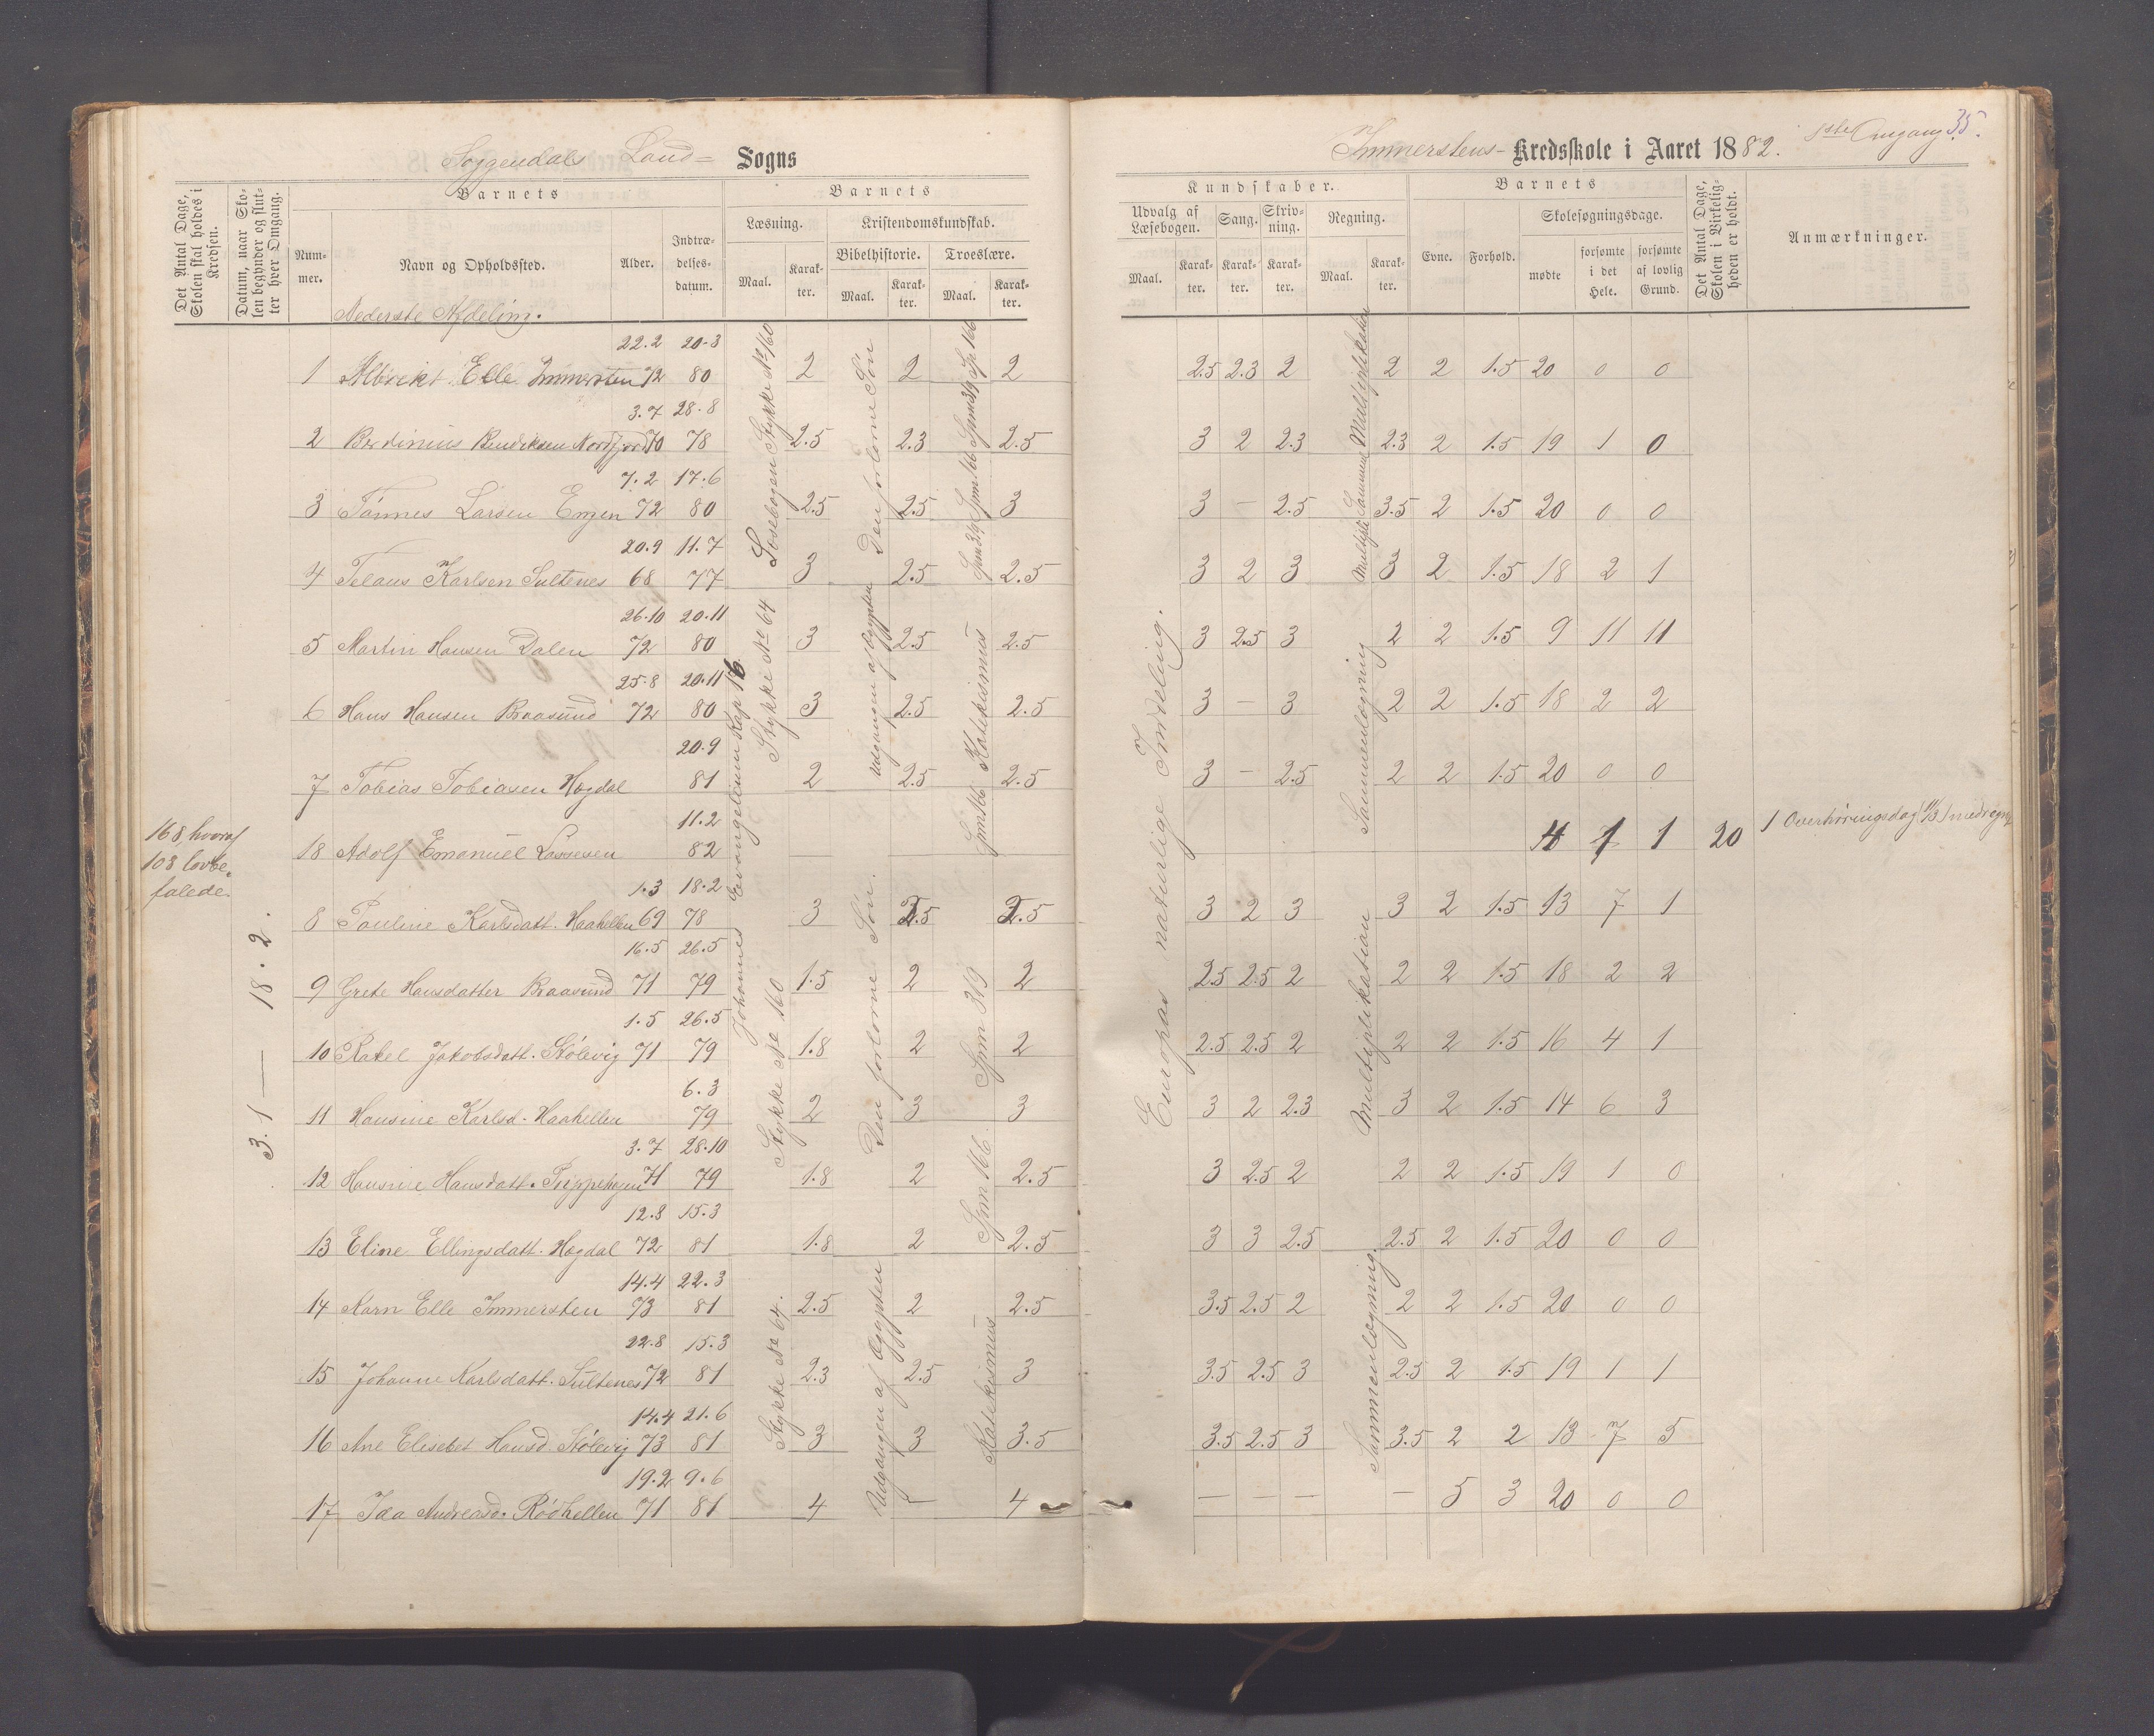 Soggendals Land= Sogns
Immerstens- Kredsskole i Aaret 1882. 1ste Omgang 35.
Det Antal Dage, Skolen skal holdes i Kredsen.
Datum, naar Skolen begynder og slutter hver Omgang.
Barnets
Barnets
Nummer.
Navn og Opholdssted.
Alder.
Indtrædelsesdatum.
Læsning.
Kristendomskundskab.
Bibelhistorie.
Troeslære.
Maal.
Karakter.
Maal.
Karakter.
Maal.
Karakter.
Kundskaber.
Barnets
Udvalg af Læsebogen.
Sang.
Skrivning.
Regning.
Evne.
Forhold.
Skolesøgningsdage.
Maal.
Karakter.
Karakter.
Karakter.
Maal.
Karakter.
mødte
forsømte i det Hele.
forsømte af lovlig Grund.
Det Antal Dage, Skolen i Virkeligheden er holdt.
Anmærkninger.
Nederste Afdeling.
22.2 20-3
1 Albrekt Elle Immersten 72 80 2 2 2 2.5 2.3 2 2 2 1.5 20 0 0
3.7 28.8
2 Berdinius Bendiksen Nordfjord 70 78 2.5 2.3 2.5 3 2 2.3 2.3 2 1.5 19 1 0
7.2 17.6
3 Tønnes Larsen Engen 72 80 2.5 2.5 3 3 — 2.5 3.5 2 1.5 20 0 0
20.9 11.7
4 Telaus Karlsen Sultenes 68 77 3 2.5 2.5 3 2 3 3 2 1.5 18 2 1
26.10 20.11
5 Martin Hansen Dalen 72 80 3 2.5 2.5 3 2.5 3 2 2 1.5 9 11 11
25.8 20.11
6 Hans Hansen Braasund 72 80 3 2.5 2.5 3 — 3 2 2 1.5 18 2 2
20.9
7 Tobias Tobiasen Hægdal 81 2 2.5 2.5 3 — 2.5 2 2 1.5 20 0 0
11.2
18 Adolf Emanuel Lassesen 82 4 1 1 20 1 Overhøringsdag medregn
1.3 18.2
8 Pauline Karlsdatt. Haahellen 69 78 3 2.5 2.5 3 2 3 3 2 1.5 13 7 1
16.5 26.5
9 Grete Hansdatter Braasund 71 79 1.5 2 2 2.5 2.5 2 2 2 1.5 18 2 2
1.5 26.5
10 Rakel Jakobsdatt. Stølevig 71 79 1.8 2 2 2.5 2.5 2 2 2 1.5 16 4 1
6.3
11 Hansine Karlsd. Haahellen 79 2 3 3 3 2 2.3 3 2 1.5 14 6 3
3.7 28.10
12 Hansine Hansdatt. 71 79 1.8 2 2.5 3 2.5 2 2 2 1.5 19 1 0
12.8 15.3
13 Eline Ellingsdatt. Hægdal 72 81 1.8 2 2.5 3 3 2.5 2.5 2 1.5 20 0 0
14.4 22.3
14 Karn Elle Immersten 73 81 2.5 2 2.5 3.5 2.5 2 2 2 1.5 20 0 0
22.8 15.3
15 Johanne Karlsdatt. Sultenes 72 81 2.3 2.5 3 3.5 2.5 3 2.5 2 1.5 19 1 1
14.4 21.6
16 Ane Elisebet Hansd. Stølevig 73 81 3 3 3.5 3.5 2.5 3 3.5 2 2 13 7 5
19.2 9.6
17 Ida Andreasd. Rødhellen 71 81 4 — 4 — — — — 5 3 20 0 0
168 hvoraf
108 lovbe-
falede.
3.1 — 18.2.
Johannes Evangelium Kap 16
Læsebogen Stykke No 160
Stykke No 64
Stykke No 160
Stykke No 64.
Den forlorne Søn
Udgangen af Ægypten
Den forlorne Søn.
Udgangen af Ægypten
Spm 319 Spm 166 Spm 319 Sp 166
Spm 166 Katekismus
Spm 166. Spm 319
Katekismus
Europas naturlige Inddeling.
Multipl. Sammenl Multiplikation
Sammenlægning
Multiplikation
Sammenlægning.